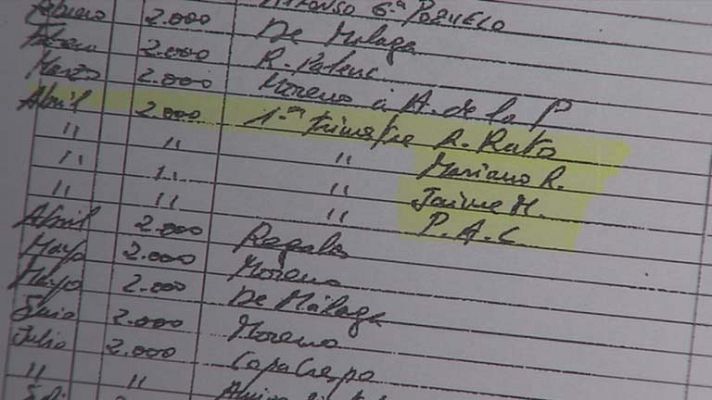 Febrero 2.000 Alfonso Gª Pozuelo
Febrero 2.000 De Malaga
Marzo 2.000 R. Palenc
Moreno a A. de la P
Abril 2.000 1er trimestre R. Rato
" " " Mariano R.
" " " Jaime M.
" " " P.A.C
Abril 2.000 Regalos
Mayo 2.000 Moreno
Mayo 2.000 De Málaga
Junio 2.000 Moreno
Julio 2.000 CopaCrespo
" "